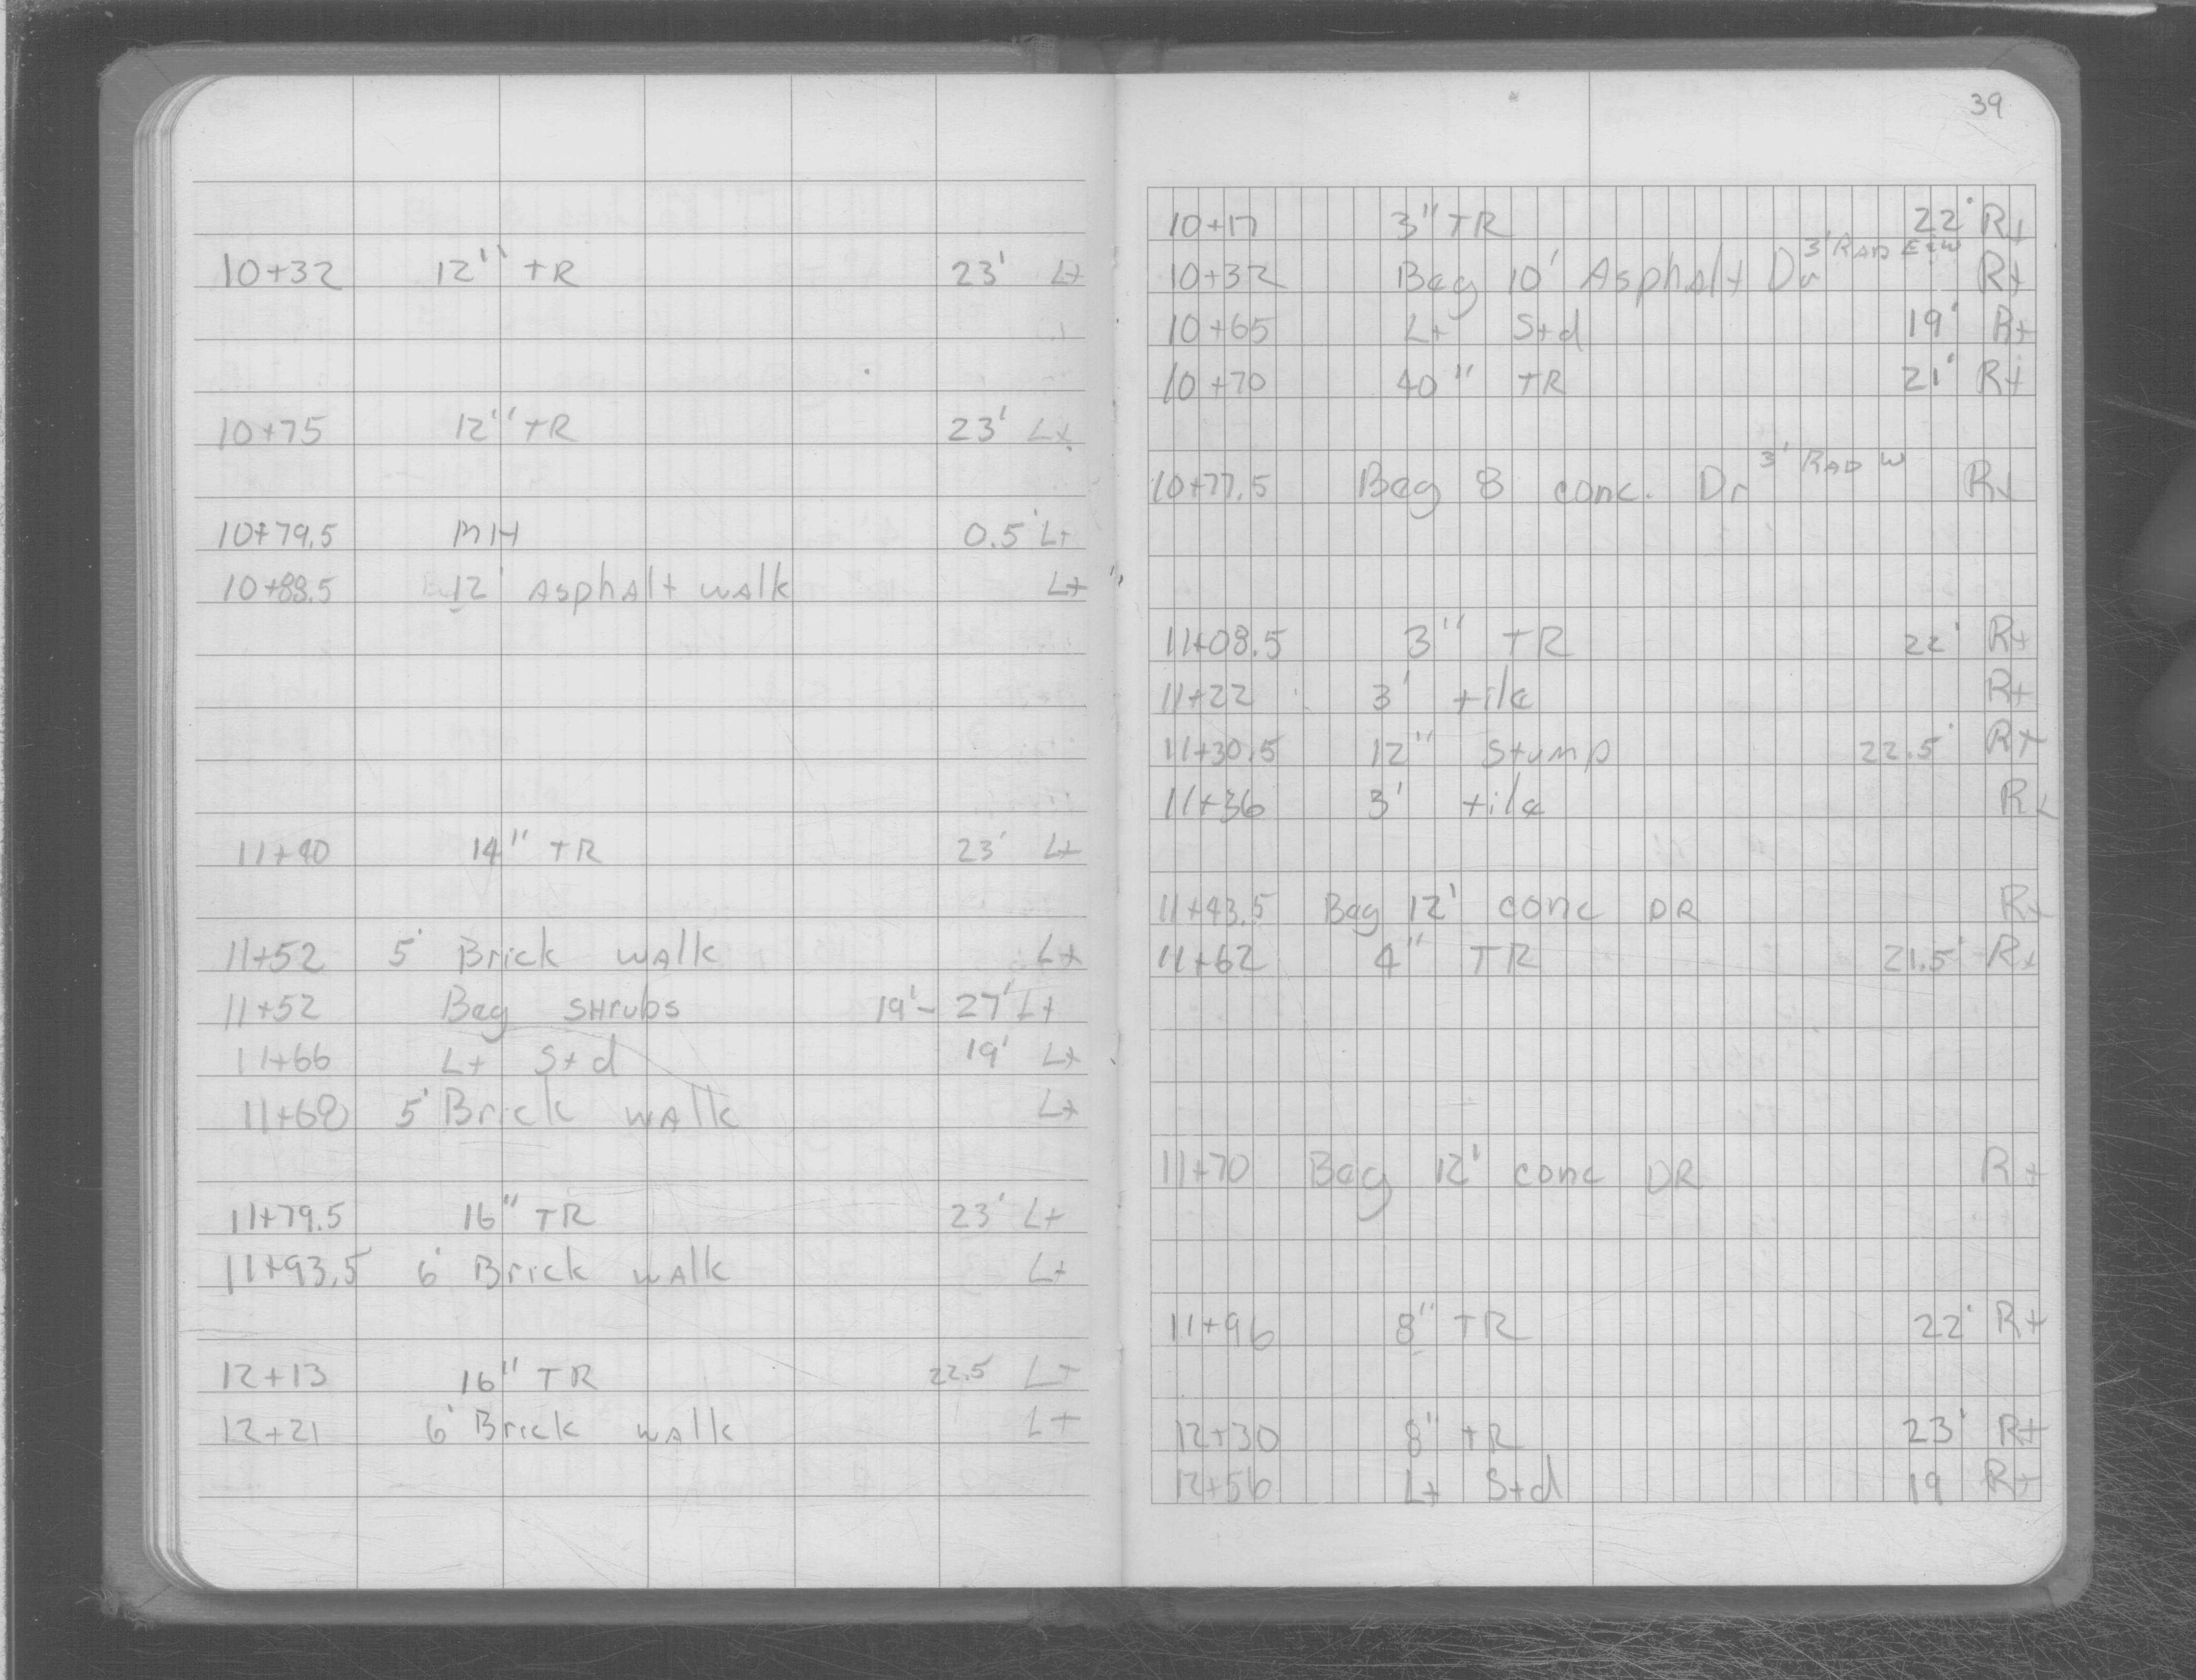 10+32 12" TR 23' Lt
10+75 12" TR 23' Lt
10+79.5 MH 0.5' Lt
10+88.5 12' Asphalt walk Lt
11+40 14" TR 23' Lt
11+52 5' Brick walk Lt
11+52 Beg SHrubs 19'- 27' Lt
11+66 Lt Std 19' Lt
11+68 5' Brick walk Lt
11+79.5 16" TR 23' Lt
11+93.5 6' Brick walk Lt
12+13 16" TR 22.5 Lt
12+21 6' Brick walk Lt
39
10+17 3" TR 22' Rt
10+32 Beg 10' Asphalt Dr 3' RAD E+W Rt
10+65 Lt Std 19' Rt
10+70 40" TR 21' Rt
10+77.5 Beg 8 conc. Dr 3' RAD W Rt
11+08.5 3" TR 22' Rt
11+22 3' tile Rt
11+30.5 12" Stump 22.5' Rt
11+36 3' tile Rt
11+43.5 Beg 12' conc DR Rt
11+62 4" TR 21.5' Rt
11+70 Beg 12' conc DR Rt
11+96 8" TR 22' Rt
12+30 8" TR 23' Rt
12+56 Lt Std 19 Rt